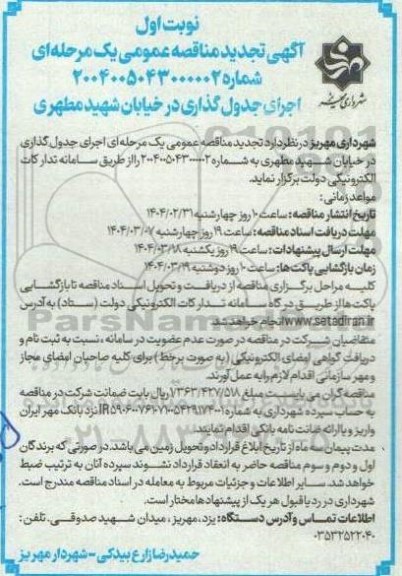 نوبت اول
آگهی تجدید مناقصه عمومی یک مرحله‌ای
شماره ۲۰۰۴۰۰۵۰۴۳۰۰۰۰۰۲
اجرای جدول گذاری در خیابان شهید مطهری
شهرداری مهریز
شهرداری مهریز در نظر دارد تجدید مناقصه عمومی یک مرحله‌ای اجرای جدول گذاری
در خیابان شهید مطهری به شماره ۲۰۰۴۰۰۵۰۴۳۰۰۰۰۰۲ را از طریق سامانه تدارکات
الکترونیکی دولت برگزار نماید.
مواعد زمانی:
تاریخ انتشار مناقصه: ساعت ۱۰ روز چهارشنبه ۱۴۰۴/۰۲/۳۱
مهلت دریافت اسناد مناقصه: ساعت ۱۹ روز چهارشنبه ۱۴۰۴/۰۳/۰۷
مهلت ارسال پیشنهادات: ساعت ۱۹ روز یکشنبه ۱۴۰۴/۰۳/۱۸
زمان بازگشایی پاکت‌ها: ساعت ۱۰ روز دوشنبه ۱۴۰۴/۰۳/۱۹
کلیه مراحل برگزاری مناقصه از دریافت و تحویل اسناد مناقصه تا بازگشایی
پاکت‌ها از طریق درگاه سامانه تدارکات الکترونیکی دولت (ستاد) به آدرس
www.setadiran.ir انجام خواهد شد.
متقاضیان شرکت در مناقصه در صورت عدم عضویت در سامانه، نسبت به ثبت نام و
دریافت گواهی امضای الکترونیکی (به صورت برخط) برای کلیه صاحبان امضای مجاز
و مهر سازمانی اقدام لازم را به عمل آورند.
مناقصه گران می بایست مبلغ ۷/۳۶۳/۴۲۷/۵۱۸ ریال بابت ضمانت شرکت در مناقصه
به حساب سپرده شهرداری به شماره نزد بانک مهر ایران
واریز و یا ارائه ضمانت نامه بانکی اقدام نمایند.
مدت پیمان سه ماه از تاریخ ابلاغ قرارداد و تحویل زمین می باشد. در صورتی که برندگان
اول و دوم و سوم مناقصه حاضر به انعقاد قرارداد نشوند سپرده آنان به ترتیب ضبط
خواهد شد. سایر اطلاعات و جزئیات مربوط به معامله در اسناد مناقصه مندرج است.
شهرداری در رد یا قبول هر یک از پیشنهادها مختار است.
اطلاعات تماس و آدرس دستگاه: یزد، مهریز، میدان شهید صدوقی. تلفن:
۰۳۵۳۲۵۲۲۰۴۰
حمیدرضا زارع بیدکی - شهردار مهریز